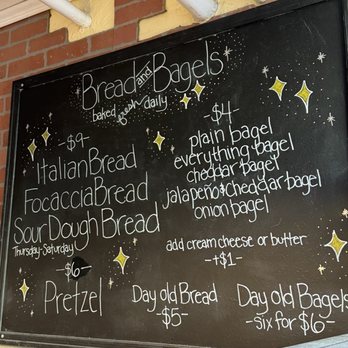 Bread and Bagels
baked fresh daily
-$9-
Italian Bread
Focaccia Bread
Sour Dough Bread
Thursday-Saturday
-$6-
Pretzel
-$4-
plain bagel
everything bagel
cheddar bagel
jalapeño+cheddar bagel
onion bagel
add cream cheese or butter
-+$1-
Day old Bread
-$5-
Day old Bagels
-six for $6-